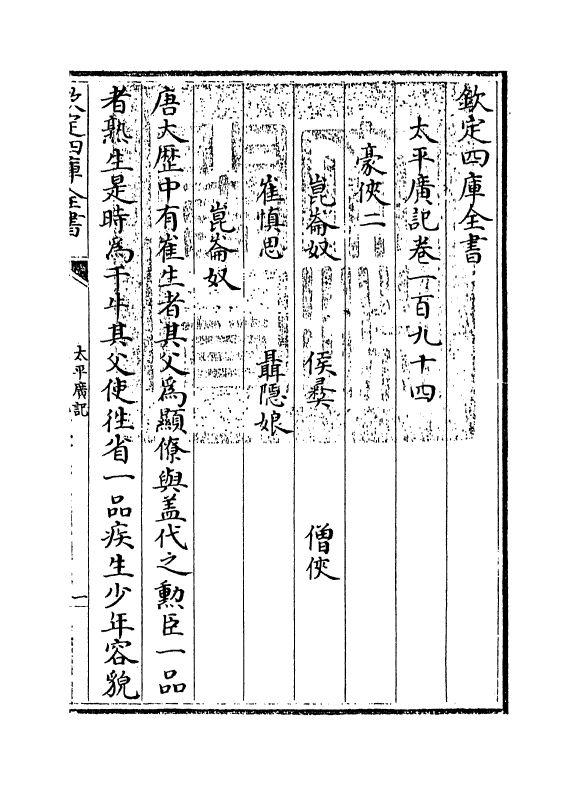 欽定四庫全書
太平廣記卷一百九十四
豪俠二
崑崙奴　侯彝　僧俠
崔慎思　聶隠娘
崑崙奴
唐大歴中有崔生者其父為顯僚與盖代之勲臣一品
者熟生是時為千牛其父使往省一品疾生少年容貌
欽定四庫全書
太平廣記
一